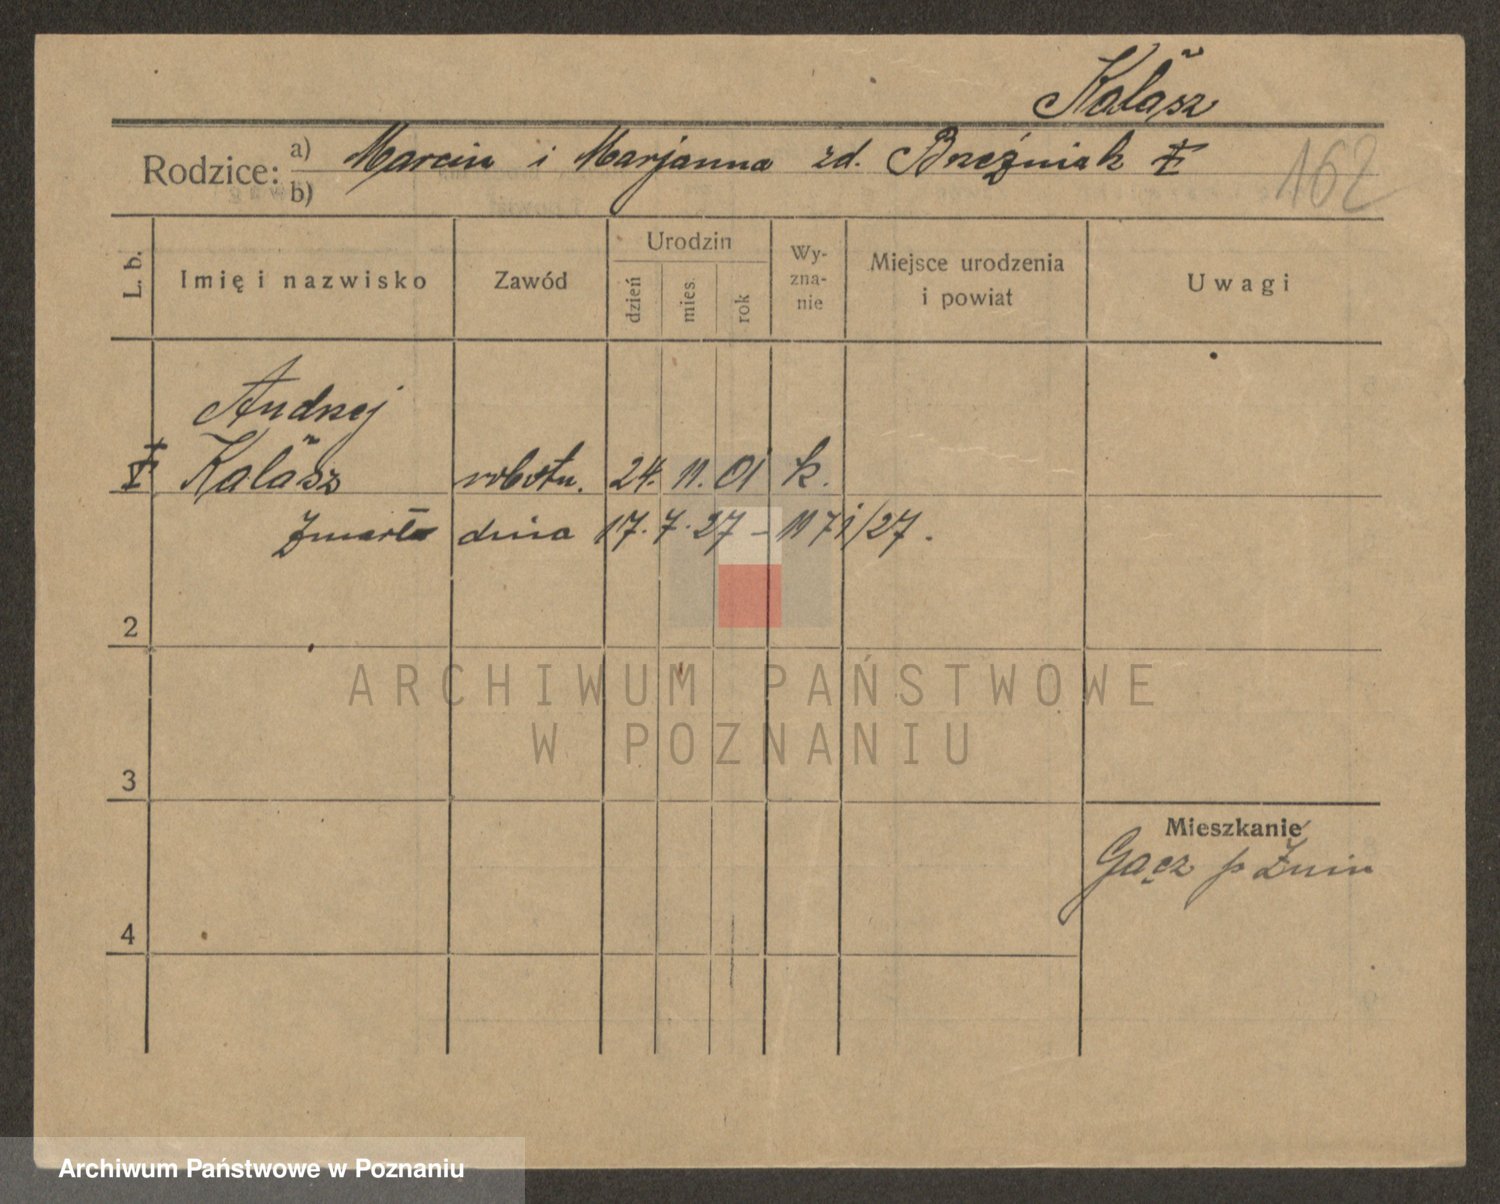 Kalasz
Rodzice: a) Marcin i Marjanna zd. Brzeźniak
b)
162
L. b.
Imię i nazwisko
Zawód
Urodzin
dzień
mies.
rok
Wy-
zna-
nie
Miejsce urodzenia
i powiat
Uwagi
Andrzej
Kalasz robotn. 24. 11. 01 k.
Zmarło dnia 17. 7. 27 - 1171/27.
2
3
4
Mieszkanie
Gącz p Żnin
ARCHIWUM PAŃSTWOWE
W POZNANIU
Archiwum Państwowe w Poznaniu